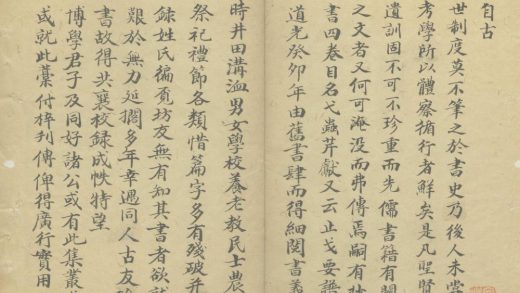 自古
世制度莫不筆之於書史乃後人未嘗
考學所以體察循行者鮮矣是凡聖賢
遺訓固不可不珍重而先儒書籍有關
之文者又何可淹没而弗傳焉嗣有
書四卷目名弋蟲芹獻又云止戈要語
道光癸卯年由舊書肆而得細閱書義
時井田溝洫男女學校養老教民士農
祭祀禮節各類惜篇字多有殘破并
録姓氏徧覔坊友無有知其書者欲
艱於無力延擱多年幸遇同人古友
書故得共襄校録成帙特望
博學君子及同好諸公或有此集叢
或就此藁付梓刋傳俾得廣行實用